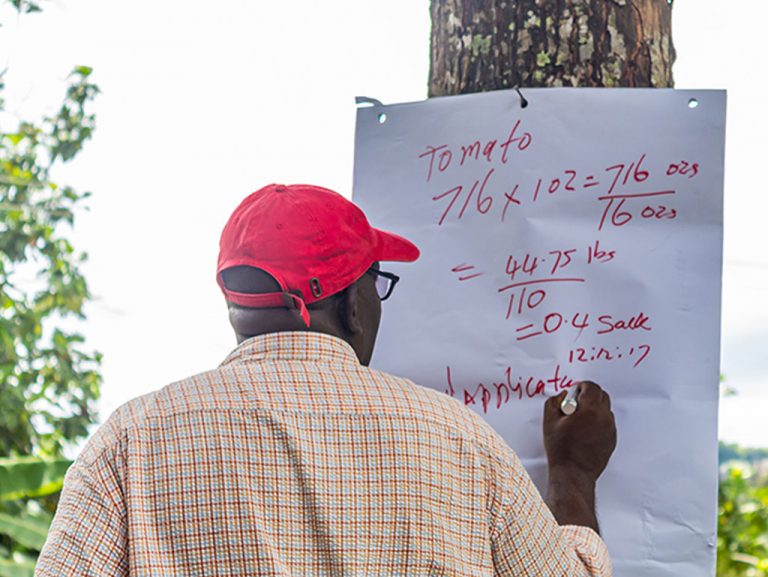 Tomato
716 x 1oz = 716 ozs
16 ozs
= 44.75 lbs
110
= 0.4 Sack
12:12:17
1 Applicat